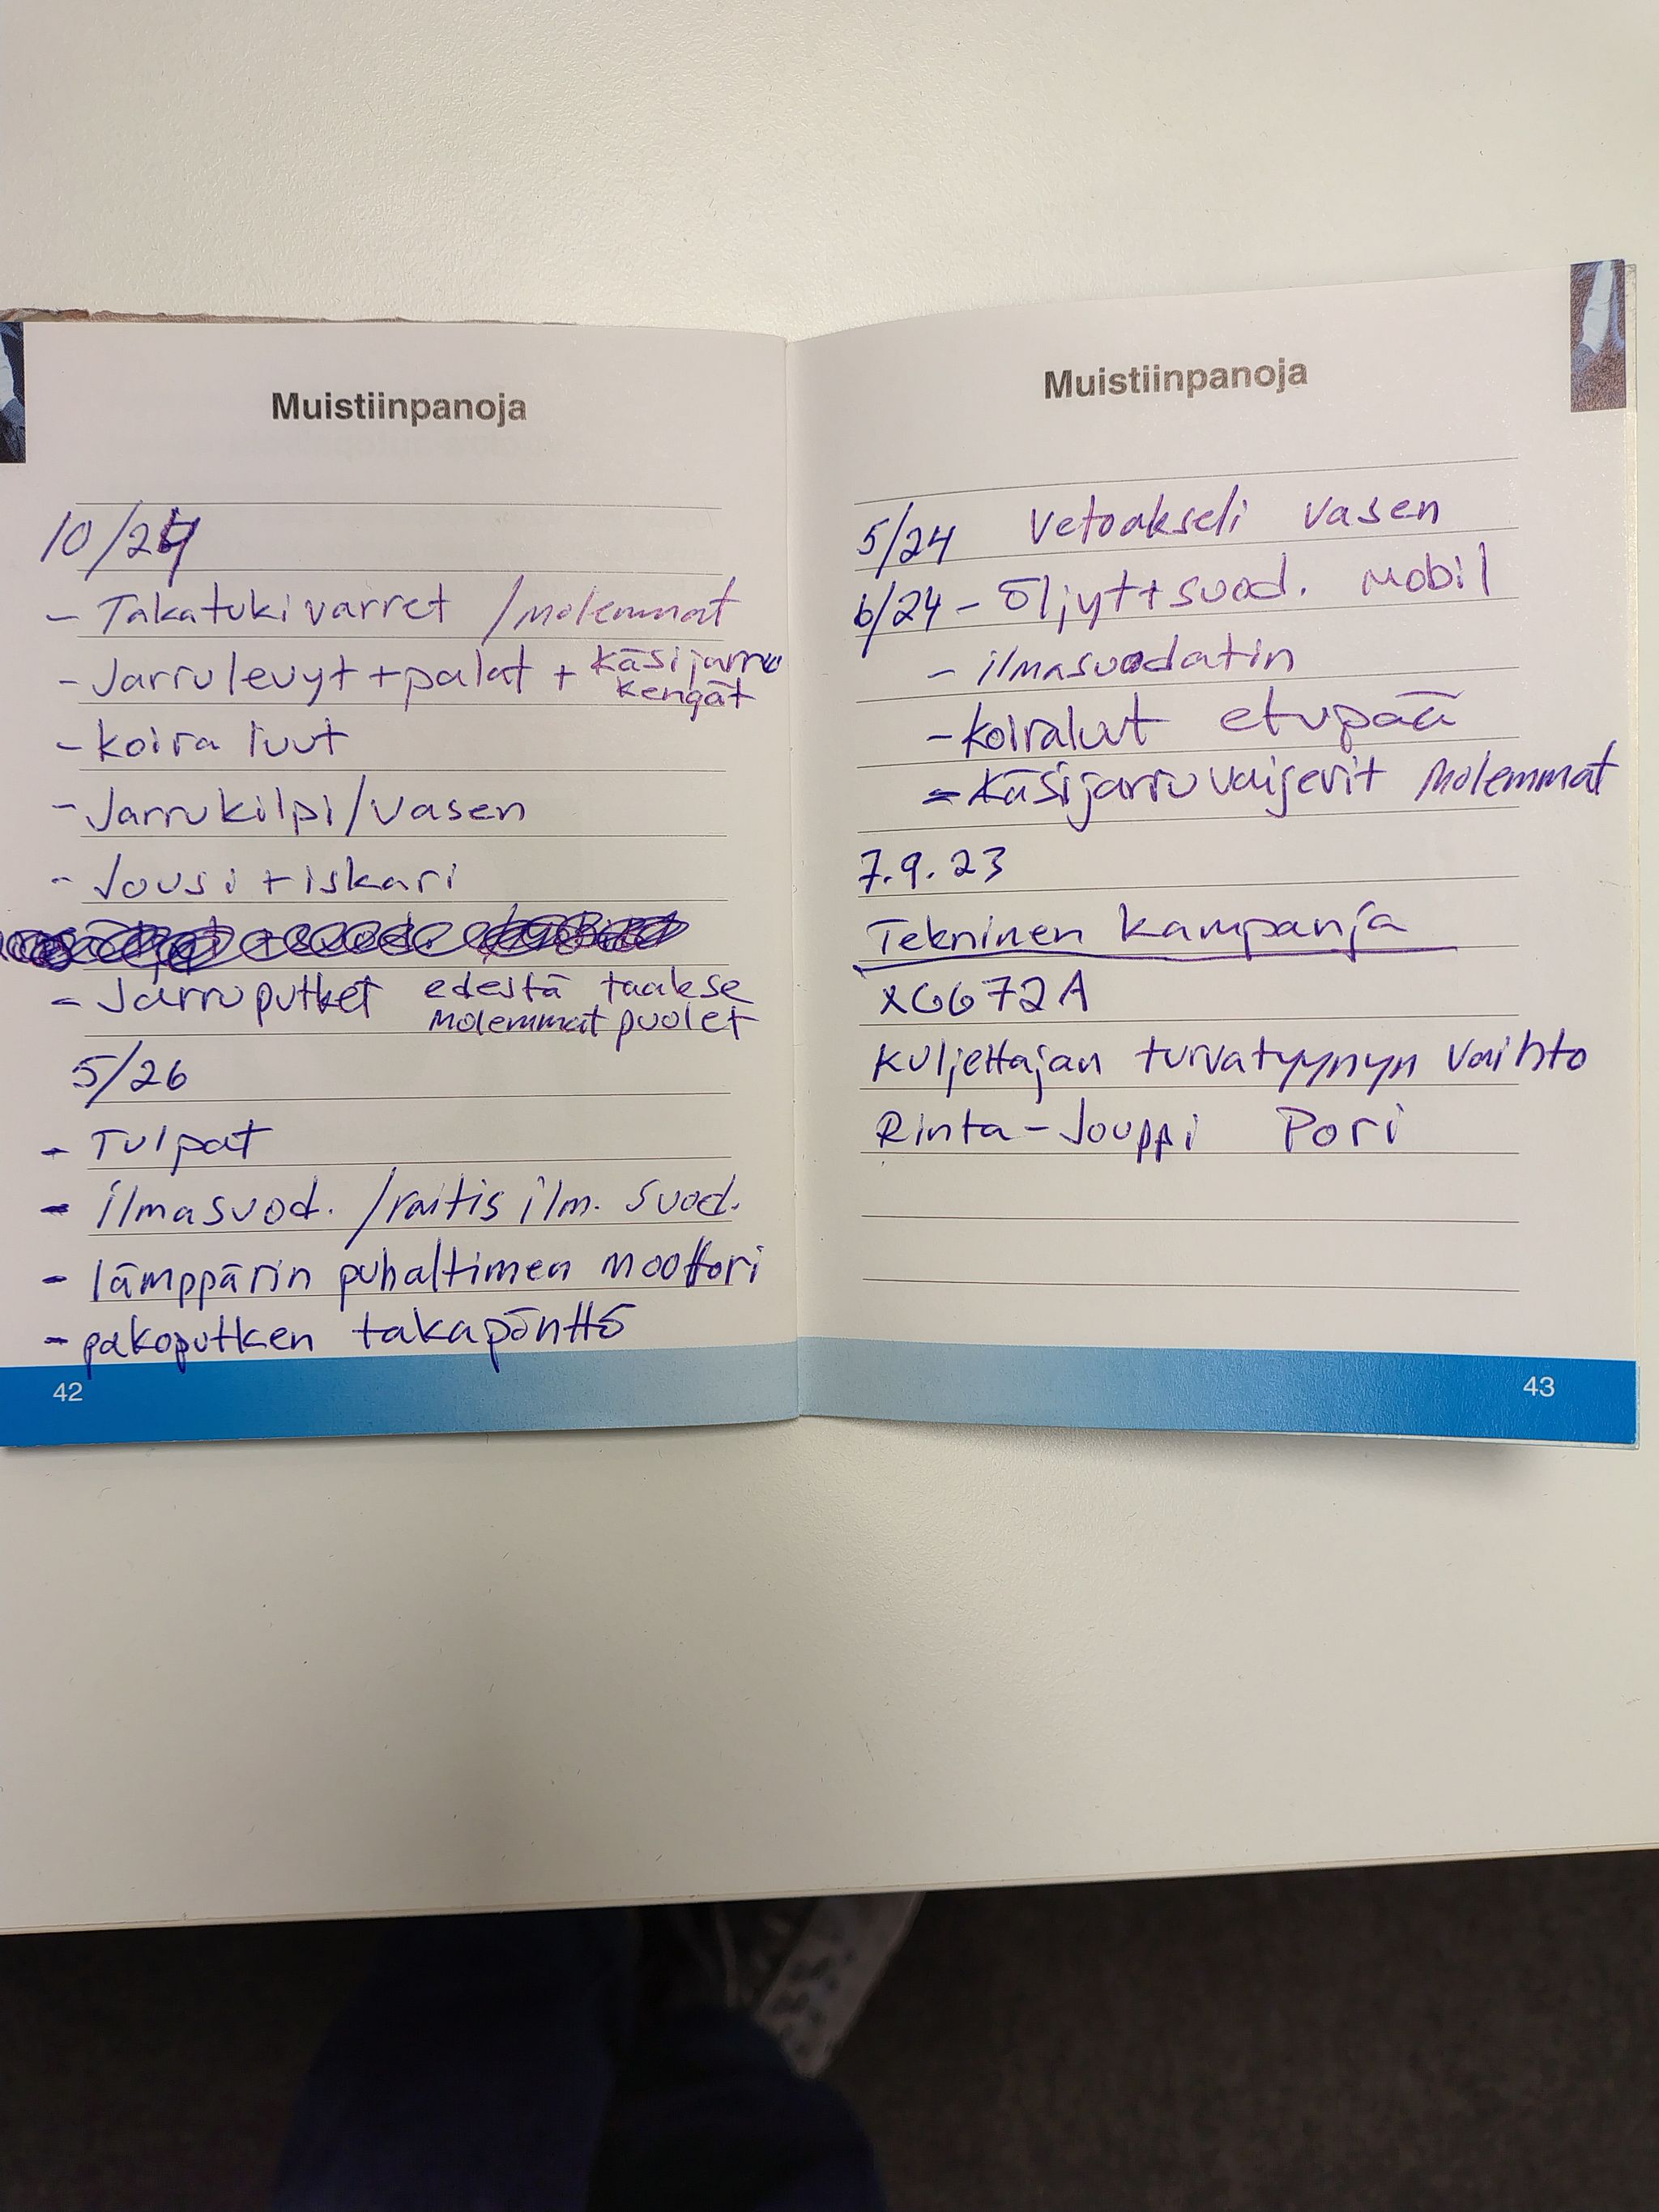 Muistiinpanoja
10/24
- Takatukivarret /Molemmat
- Jarrulevyt + palat + Käsijarru
kengät
- koira luut
- Jarrukilpi/vasen
- Jousi + iskari
- Jarruputket edestä taakse
Molemmat puolet
5/26
- Tulpat
- ilmasuod. /raitis ilm. suod.
- lämppärin puhaltimen moottori
- pakoputken takapönttö
42
Muistiinpanoja
5/24 Vetoakseli vasen
6/24 - öljyt + suod. Mobil
- ilmasuodatin
- koiraluut etupää
- Käsijarruvaijerit Molemmat
7.9.23
Tekninen kampanja
XG672A
Kuljettajan turvatyynyn vaihto
Rinta-Jouppi Pori
43